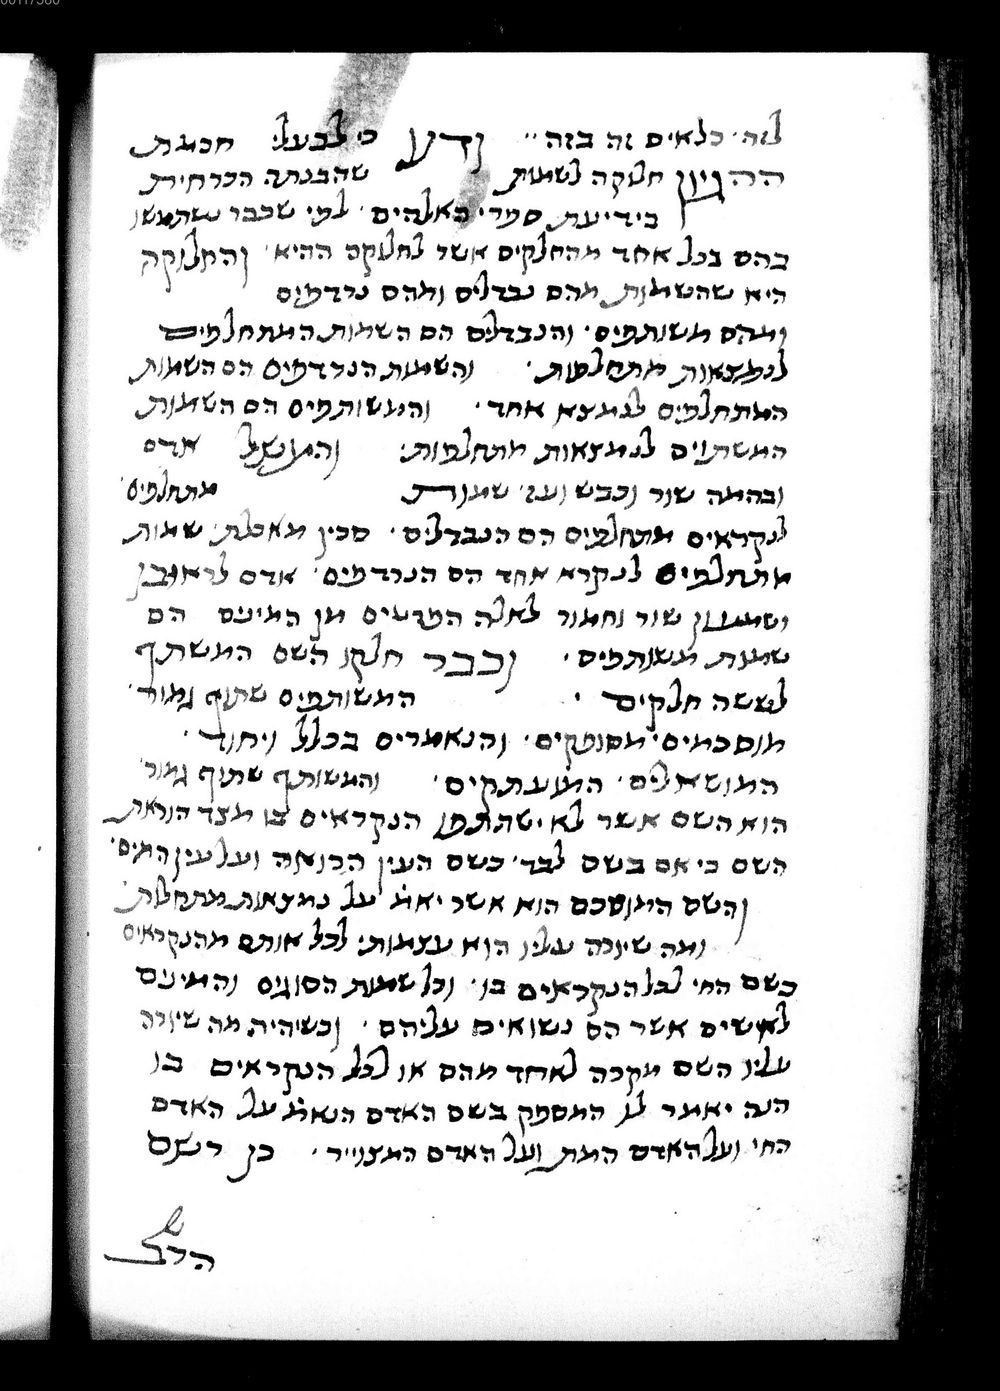 לזה׳ כלאים זה בזה׳׳ ודע כי לבעלי חכמת
ההגיון חלוקה לשמות שהבנתה הכרחית
בידיעת ספרי באלהים׳ לפי שכבר נשתמשו
בהם בכל אחד מהחלקים אשר לחלוקה ההיא׳ והחלוקה
היא שהשמות מהם נבדלים ומהם נרדפים
ומהם משותפים׳ והנבדלים הם השמות המתחלפים
לנמצאות מתחלפות׳ והשמות הנרדפים הם השמות
המתחלפים לנמצא אחד׳ והמשותפים הם השמות
המשתוים לנמצאות מתחלפות׳ והמושל אדם
ובהמה שור וכבש ועז׳ שמות מתחלפים׳
לנקראים מתחלפים הם הנבדלים׳ סכין מאכלת׳ שמות
מתחלפים לנקרא אחד הם הנרדפים׳ אדם לראובן
ושמעון שור וחמור לאלה הפרטים מן המינים הם
שמות משותפים׳ וכבר חלקו השם המשתתף
לששה חלקים׳ המשותפים שתוף גמור׳
מוסכמים׳ מסופקים׳ והנאמרים בכלל ויחוד׳
המושאלים׳ המועתקים׳ והמשותף שתוף גמור׳
הוא השם אשר לא ישתתפו הנקראים בו מצד הוראת
השם כי אם בשם לבד׳ כשם העין הרואה ועל עין המים׳
והשם המוסכם הוא אשר יאמ׳ על נמצאות מתחלפות׳
ומה שיורה עליו הוא עצמותי לכל אותם מהנקראים
כשם החי לכל הנקראים בו׳ וכל שמות הסוגים והמינים
לאישים אשר הם נשואים עליהם׳ וכשיהיה מה שיורה
עליו השם מקרה לאחד מהם או לכל הנקראים בו
הנה יאמר לו המסופק בשם האדם הנאמ׳ על האדם
החי ועל האדם המת ועל האדם המצוייר׳ כן רשם
הרב